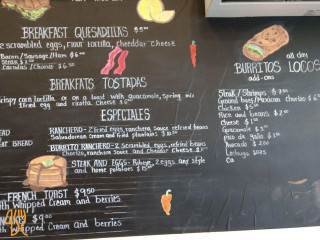 BREAKFAST QUESADILLAS $5
2 scrambled eggs, flour tortilla, cheddar cheese
Bacon/Sausage/Ham $6
BREAKFATS TOSTADAS
crispy corn tortilla or on a bed with guacamole, spring mix
fried egg and ricotta cheese
ESPECIALES
RANCHERO- 2 fried eggs, ranchera sauce refried beans
Salvadorean cream and fried plantains $10
BURRITO RANCHERO- 2 scrambled eggs, refried beans
Chorizo, ranchera sauce and cheddar cheese
STEAK AND EGGS- Ribeye, 2 eggs any style
and home potatoes $15
FRENCH TOAST $9.50
with Whipped Cream and berries
$9
with Whipped Cream and berries
all day
BURRITOS LOCOS
add-ons
Steak / Shrimps
Ground beef/Mexican Chorizo
Chicken
Rice and beans $2
Cheese $1
Guacamole $2
pico de gallo $1
Avocado $2.00
Lechuga